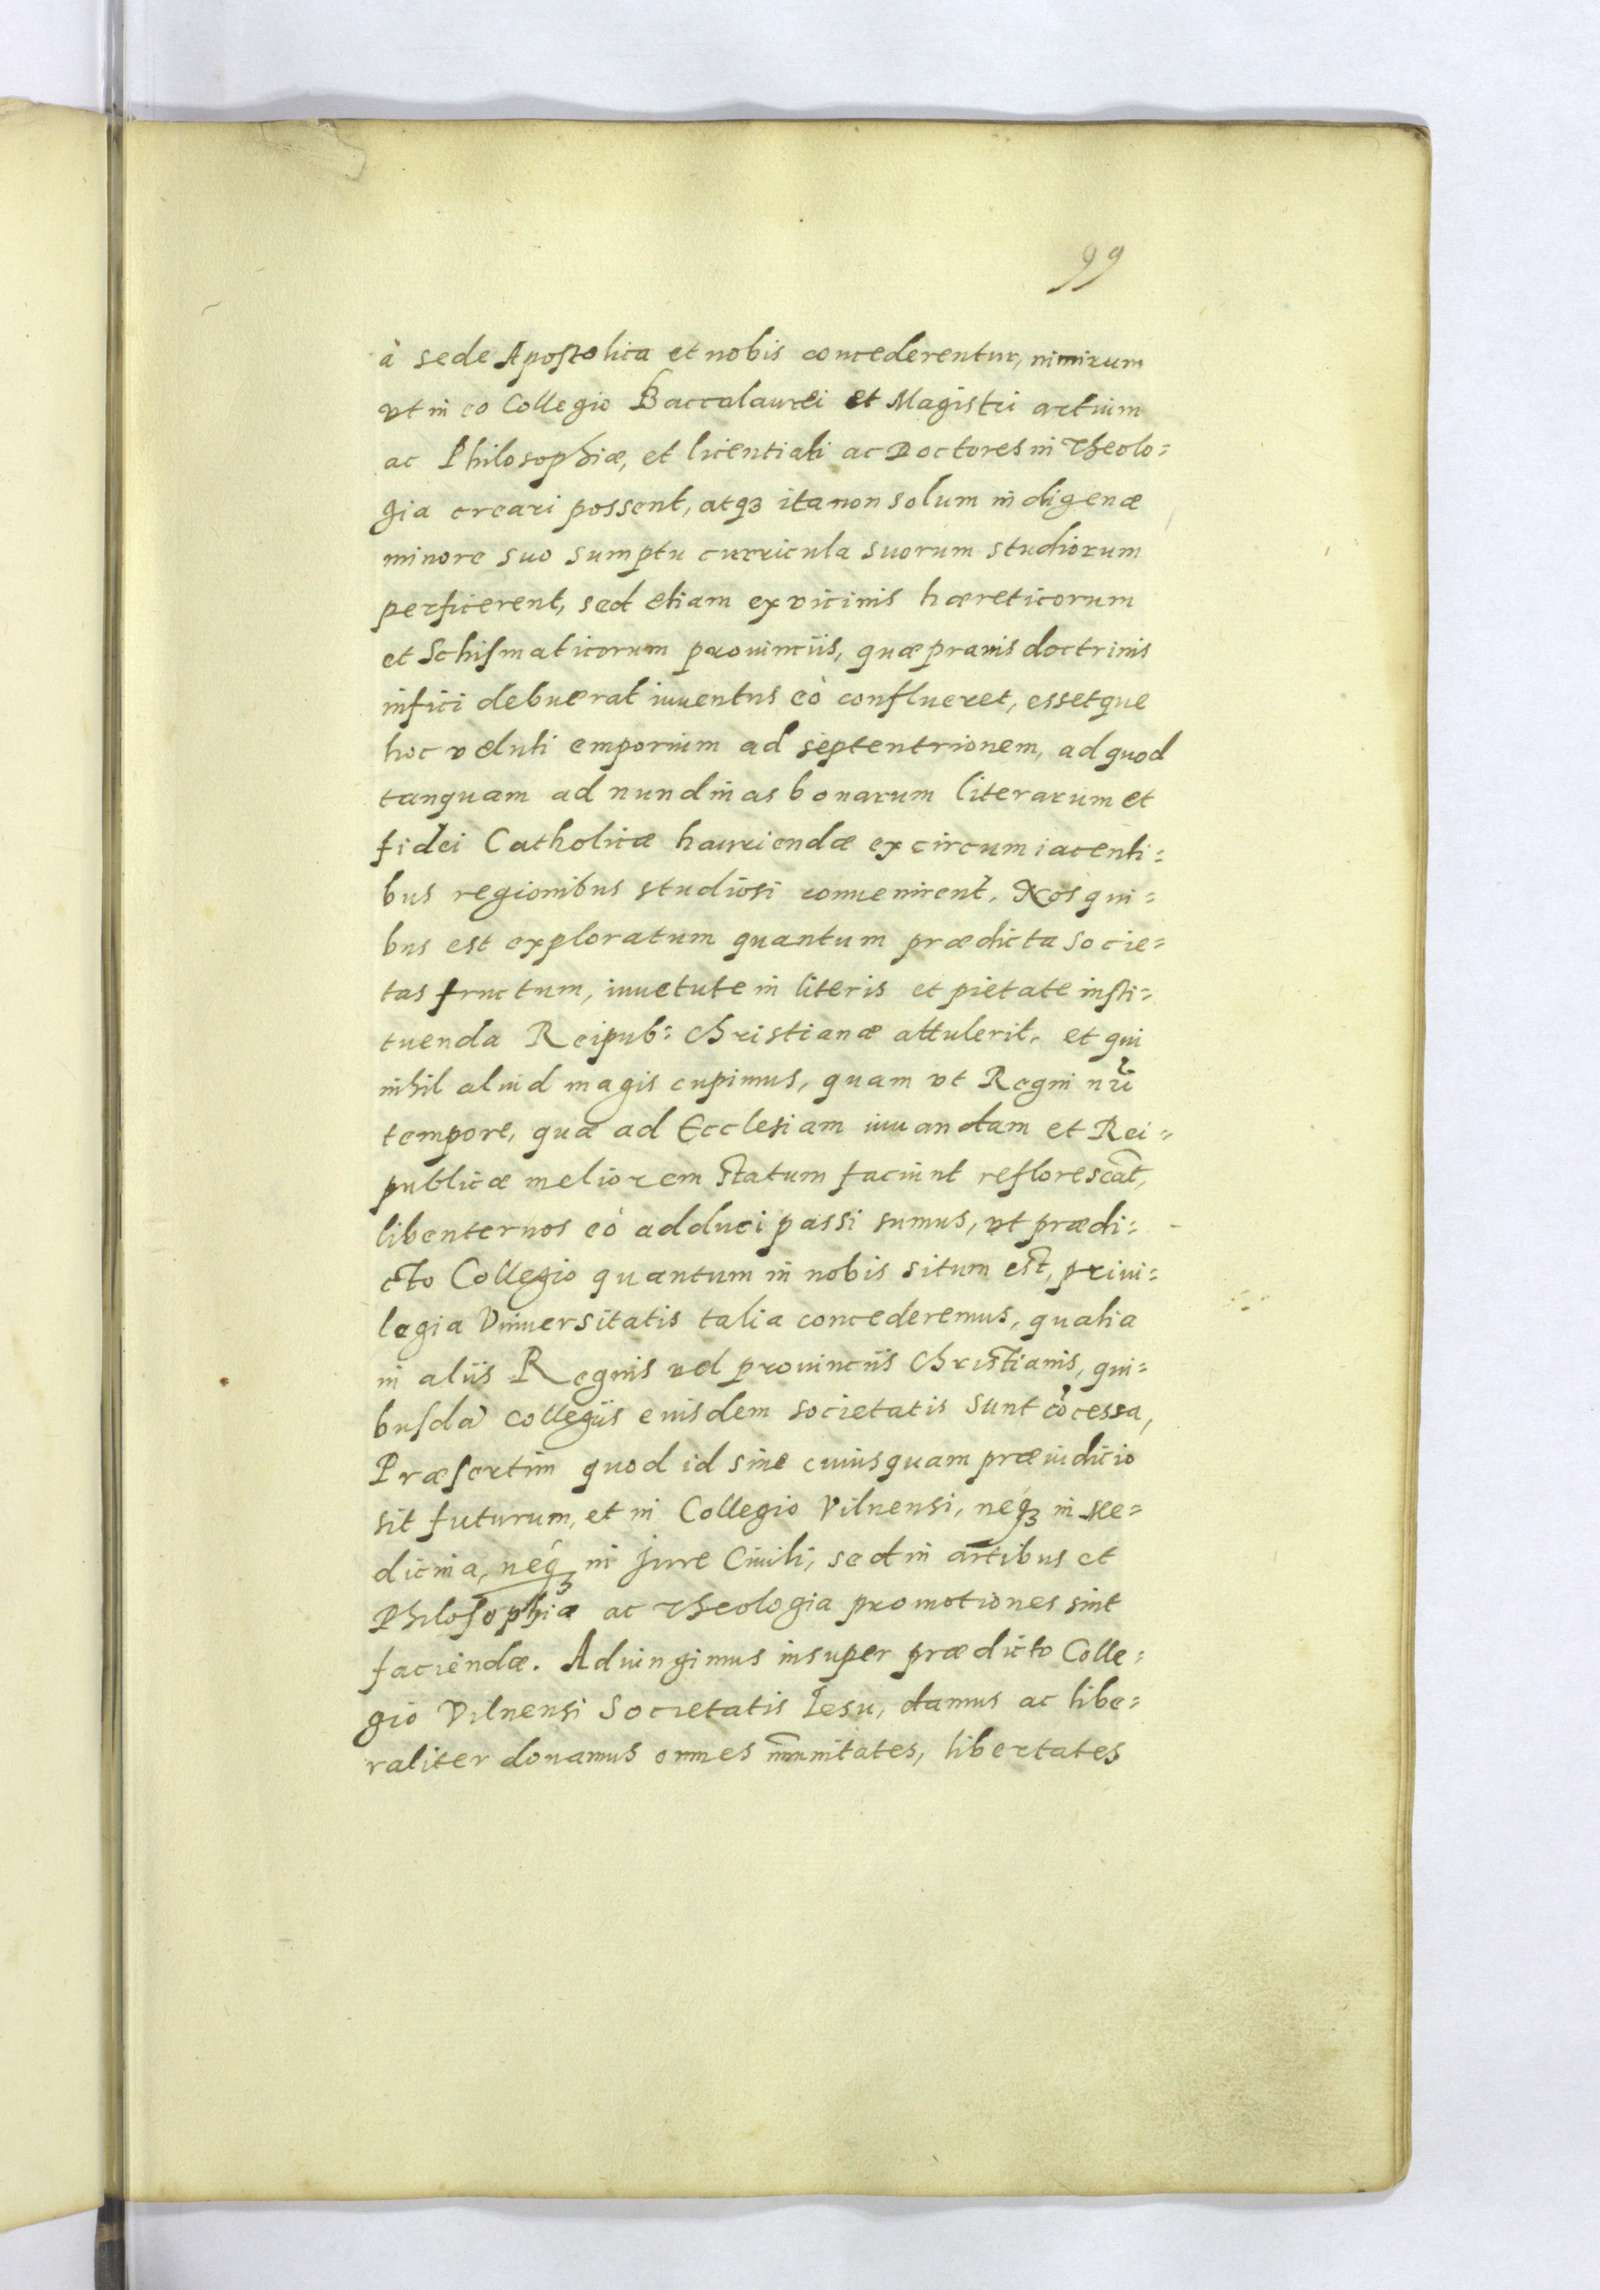 99
à sede Apostolica et nobis concederentur, nimirum
vt in eo Collegio Baccalaurei et Magistri artium
ac Philosophiæ, et licentiati ac Doctores in Theolo=
gia creari possent, atqꝫ ita non solum indigenæ
minore suo sumptu curricula suorum studiorum
perficerent, sed etiam ex vicinis hæreticorum
et Schismaticorum prouinciis, quæ prauis doctrinis
infici debuerat iuuentus eò conflueret, essetque
hoc veluti emporium ad septentrionem, ad quod
tanquam ad nundinas bonarum literarum et
fidei Catholicæ hauriendæ ex circumiacenti=
bus regionibus studiosi conuenirent. Nos qui=
bus est exploratum quantum prædicta socie=
tas fructum, iuuetute in literis et pietate insti=
tuenda Reipub: Christianæ attulerit, et qui
nihil aliud magis cupimus, quam vt Regni nr̃i
tempore, quæ ad Ecclesiam iuuandam et Rei=
publicæ meliorem statum faciunt reflorescãt,
libenter nos eò adduci passi sumus, vt prædi=
cto Collegio quantum in nobis situm est, priui=
legia Vniuersitatis talia concederemus, qualia
in aliis Regnis vel prouinciis Christianis, qui=
busdã collegiis eiusdem societatis sunt cõcessa,
Præsertim quod id sine cuiusquam præiudicio
sit futurum, et in Collegio Vilnensi, neqꝫ in Me=
dicina, neqꝫ in Jure Ciuili, sed in artibus et
Philosophiæ ac Theologia promotiones sint
faciendæ. Adiungimus insuper prædicto Colle=
gio Vilnensi Societatis Iesu, damus ac libe=
raliter donamus omnes im̃unitates, libertates